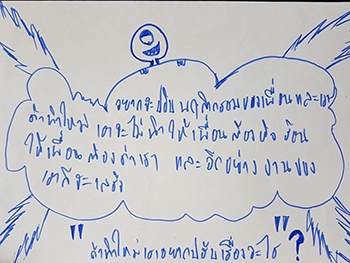 อยากจะปรับ พฤติกรรมของเพื่อนและเรา
ถ้าทำใหม่ เราจะไม่ทำ ให้เพื่อนต้องหัวร้อน
ให้เพื่อนต้องด่าเรา และอีกอย่าง งานของ
เราก็จะเสร็จ
"ถ้าทำใหม่เราอยากปรับเรื่องอะไร" ?